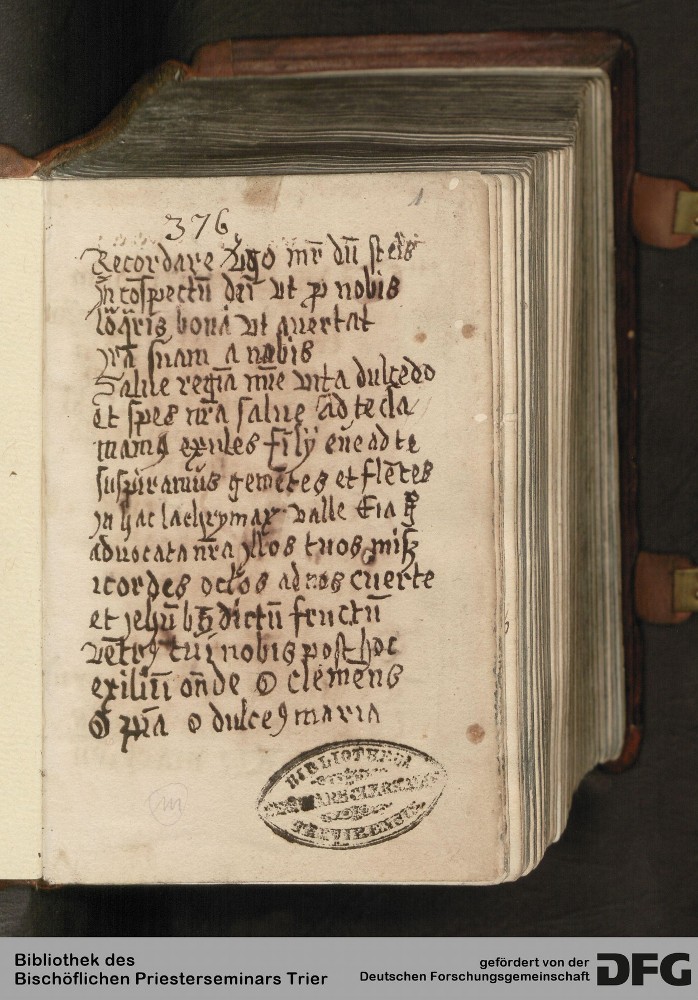 1
376
Recordare Vgo mr̄ dū steĩs
In cōspectū dei vt ꝓ nobis
lōq̄ris bona vt auertat
suam a nobis
Salue regīa mīe vita dulcedo
et spes nr̄a salue ad te cla
mamꝰ exules filÿ eue ad te
suspiramus gemētes et flētes
In hac lachrymaꝝ valle Eia
aduocata nr̄a yllos tuos mis̄
icordes oclōs ad nos cūerte
et jehū bn̄dictū fructū
vētrꝭ tui nobis post hoc
exiliū on̄de O clemens
O pīa o dulcꝭ maria
BIBLIOTHECA
SEMINARII CLERICALIS
TREVIRENSIS
m
Bibliothek des
Bischöflichen Priesterseminars Trier
gefördert von der
Deutschen Forschungsgemeinschaft
DFG